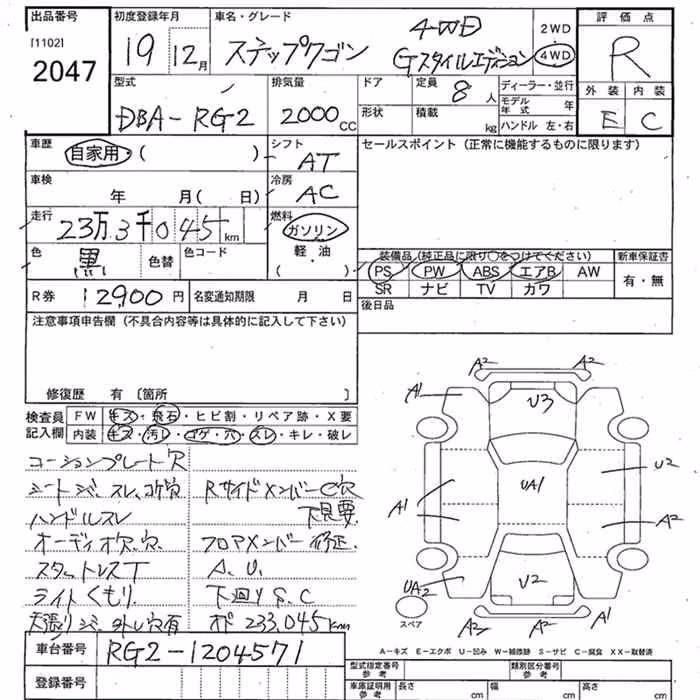 出品番号 初度登録年月 車名・グレード 評価点
[1102] 2047
19 12月 ステップワゴン 4WD Gスタイルエディション 2WD 4WD R
型式 排気量 ドア 定員 8人 ディーラー・並行 外装 内装
DBA-RG2 2000 CC 形状 積載 kg モデル年式 年 ハンドル 左・右 E C
車歴 自家用・( ) シフト AT セールスポイント (正常に機能するものに限ります)
車検 年 月( 日) 冷房 AC
走行 23万3千045km 燃料 ガソリン 軽・油 ( )
色 黒 色替 色コード 装備品 (純正品に限り○をつけてください) 新車保証書
PS PW ABS エアB AW 有・無
SR ナビ TV カワ
R券 12900円 名変通知期限 月 日 後日品
注意事項申告欄 (不具合内容等は具体的に記入して下さい)
修復歴 有 [箇所 ]
検査員記入欄 FW キズ・飛石・ヒビ割・リペア跡・X要
内装 キズ・汚レ・コゲ・穴・スレ・キレ・破レ
コーションプレート穴
シートシミ、スレ、コゲ穴 RサイドメンバーC穴
ハンドルスレ 下見要
オーディオ欠、穴、 フロアメンバー 修正、
スタットレスT A、U、
ライトくもり、 下回りS、C
天張りシミ、外レ穴有 オド 233,045km
A2 A2
A1 U3
U2
A1 UA1
A2
UA2 U2 A1
スペア A2 A2
A−キズ E−エクボ U−凹み W−補修跡 S−サビ C−腐食 XX−取替済
車台番号 RG2-1204571
登録番号
型式指定番号 参考 類別区分番号 参考
車庫証明用 参考 長さ cm 幅 cm 高さ cm